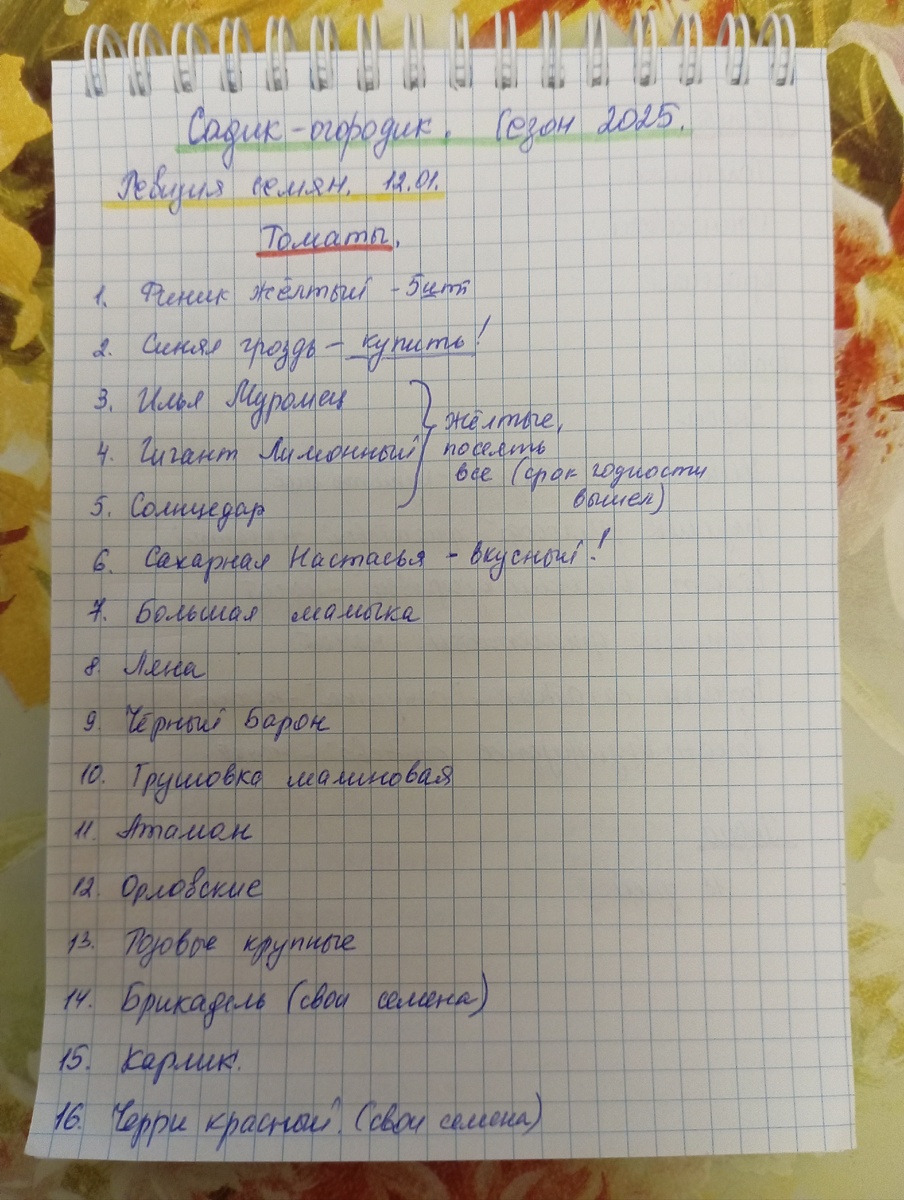 Садик-огородик. Сезон 2025.
Ревизия семян. 12.01.
Томаты.
1. Финик жёлтый - 5шт
2. Синяя гроздь - купить!
3. Илья Муромец
4. Гигант Лимонный
5. Солнцедар
жёлтые,
посеять
все (срок годности
вышел)
6. Сахарная Настасья - вкусный!
7. Большая мамочка
8. Ляна
9. Чёрный Барон
10. Грушовка малиновая
11. Атаман
12. Орловские
13. Розовые крупные
14. Брикадель (свои семена)
15. Карлик.
16. Черри красный. (свои семена)